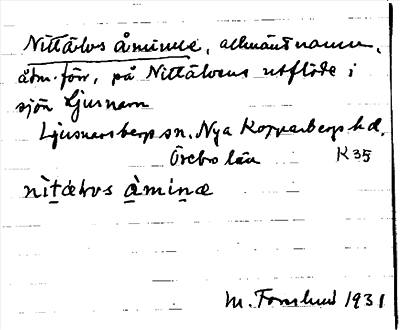 Nittälvs åminne, allmänt namn,
åtm. förr, på Nittälvens utflöde i
sjön Ljusnarn
Ljusnarsbergs sn. Nya Kopparbergs hd.
Örebro län K 35
nìtælvs àminæ
M. Fornlund 1931